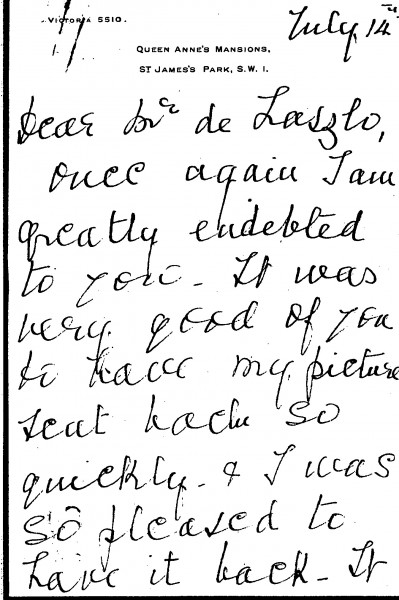 Victoria 5510.
July 14th
Queen Anne's Mansions,
St James's Park, S.W. 1.
Dear Mr de Laszlo,
once again I am
greatly endebted
to you - It was
very good of you
to have my picture
sent back so
quickly - & I was
so pleased to
have it back - It